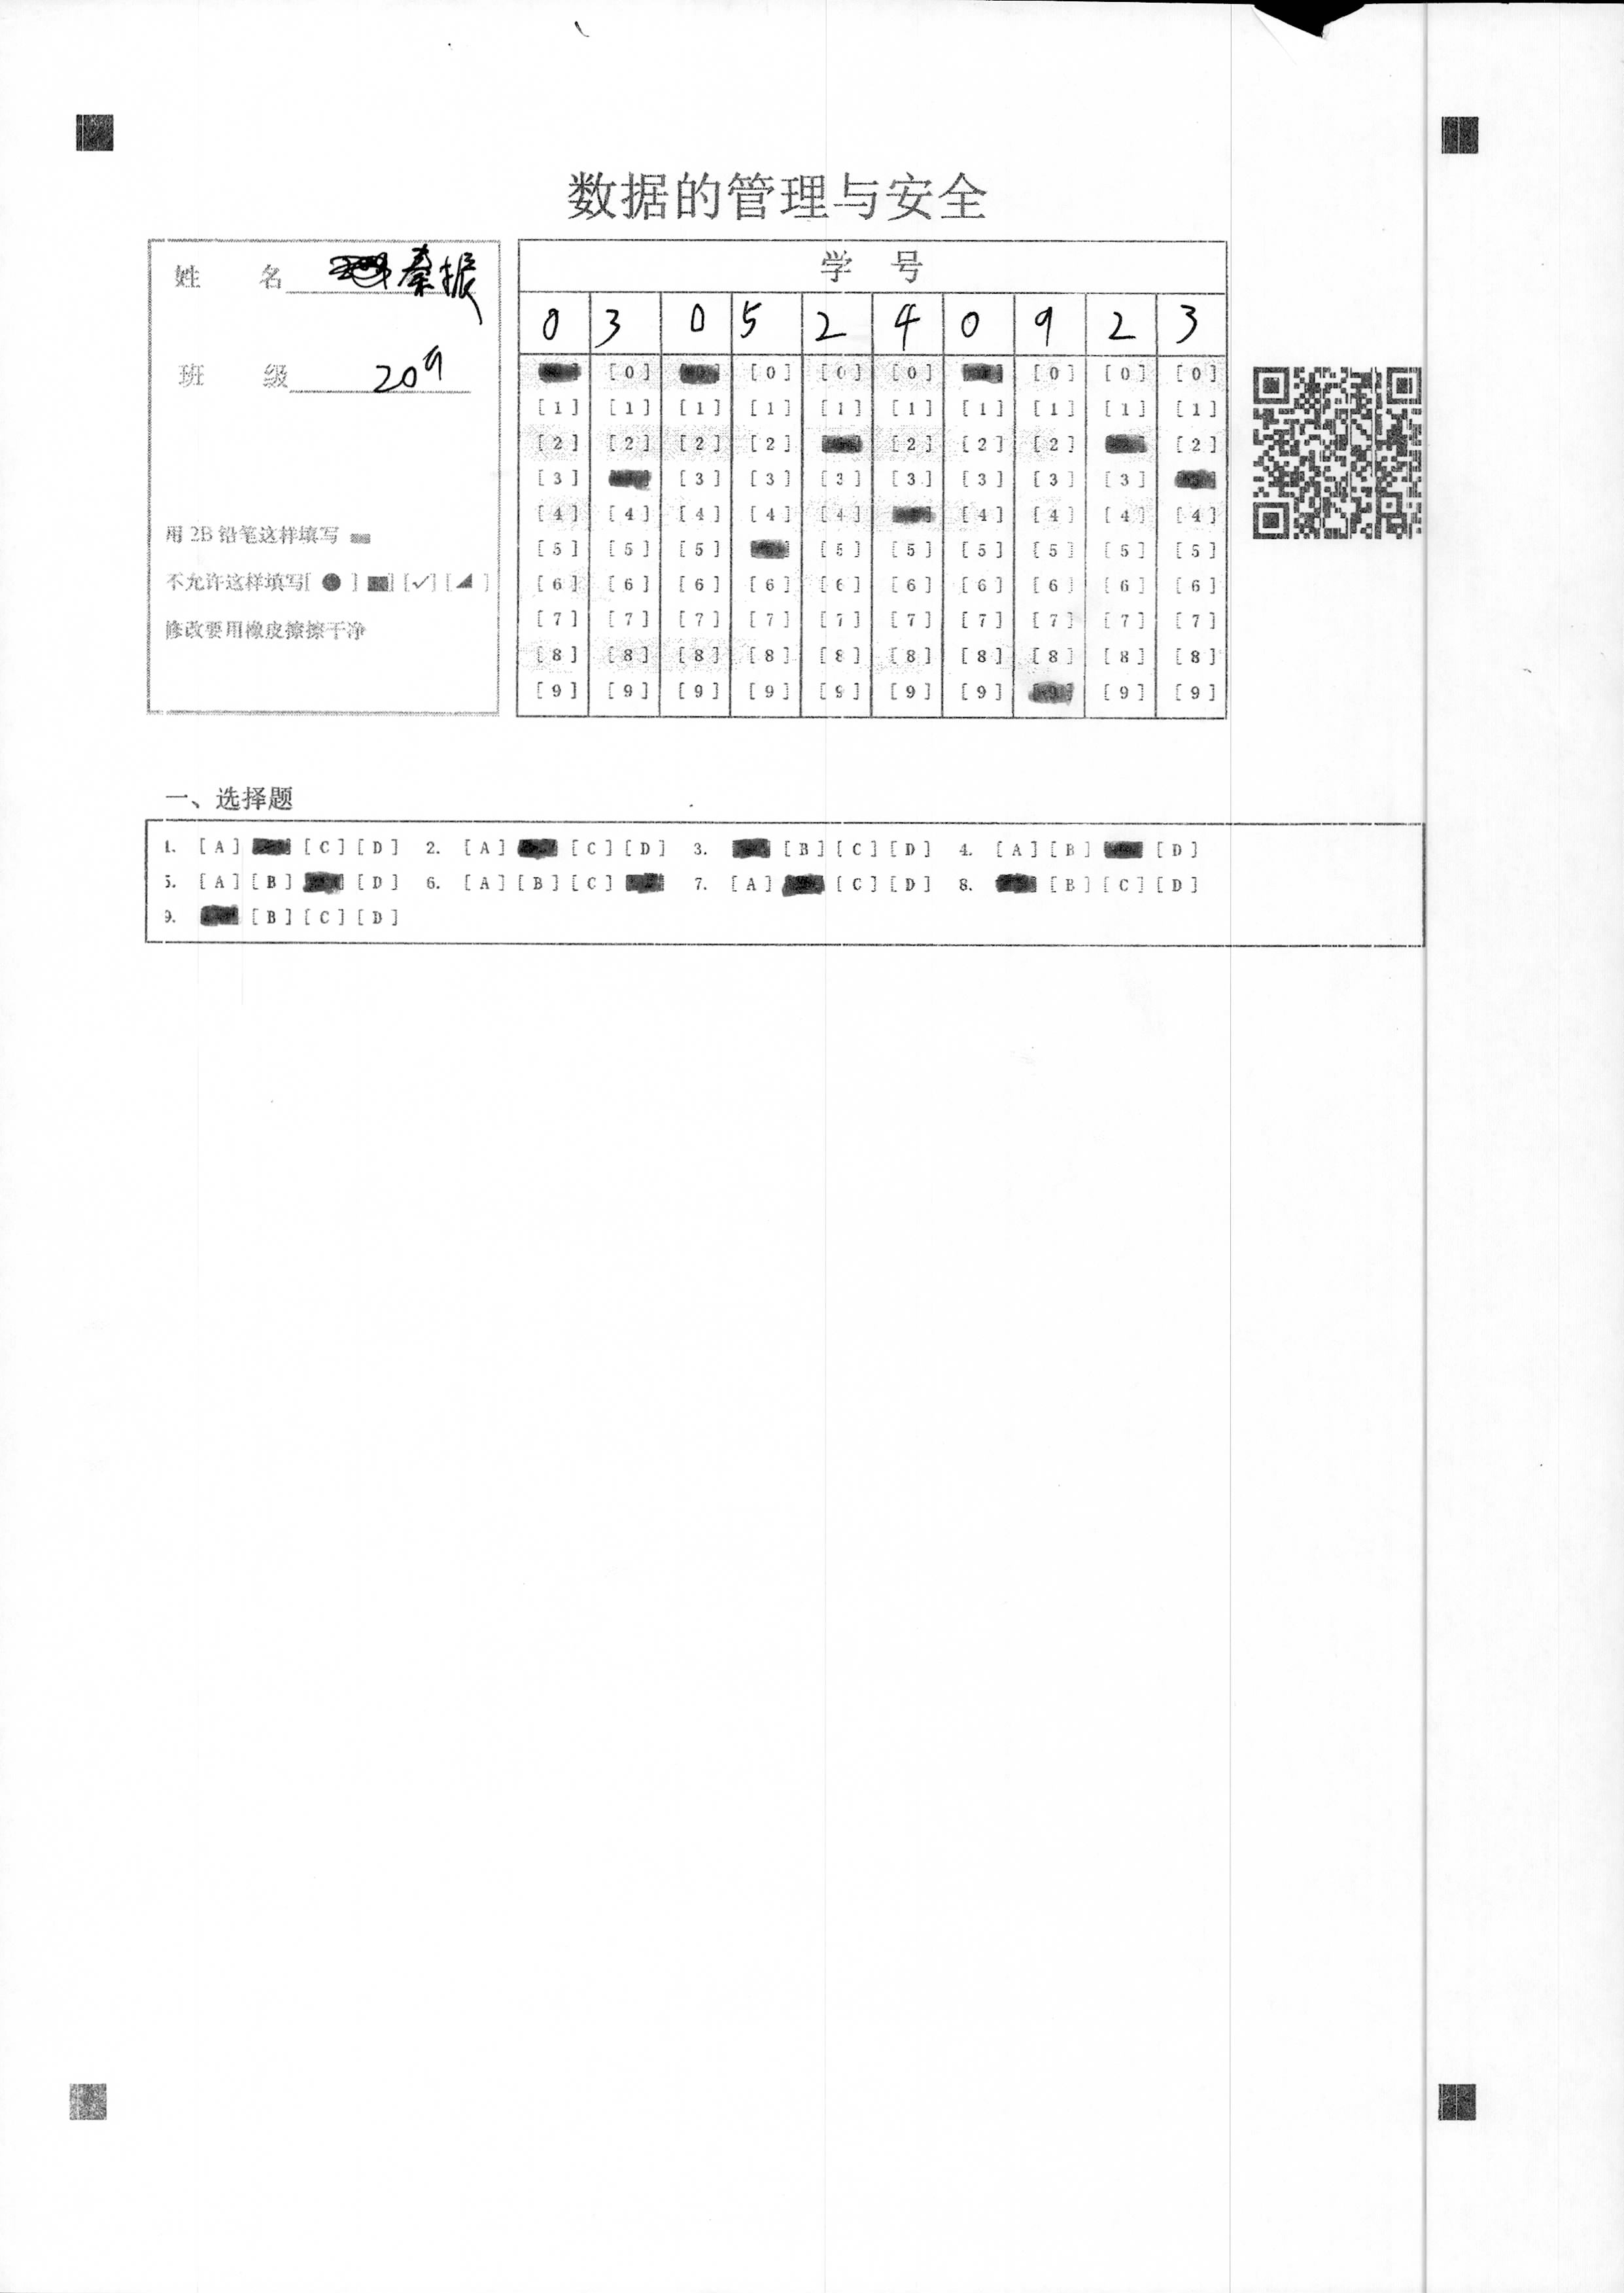 数据的管理与安全
姓 名 秦振
班 级 209
用 2B 铅笔这样填写
不允许这样填写[ ● ] [■] [✓] [◢ ]
修改要用橡皮擦擦干净
学 号
0 3 0 5 2 4 0 9 2 3
[0] [0] [0] [0] [0] [0] [0]
[1] [1] [1] [1] [1] [1] [1] [1] [1] [1]
[2] [2] [2] [2] [2] [2] [2] [2]
[3] [3] [3] [3] [3] [3] [3] [3]
[4] [4] [4] [4] [4] [4] [4] [4] [4]
[5] [5] [5] [5] [5] [5] [5] [5] [5]
[6] [6] [6] [6] [6] [6] [6] [6] [6] [6]
[7] [7] [7] [7] [7] [7] [7] [7] [7] [7]
[8] [8] [8] [8] [8] [8] [8] [8] [8] [8]
[9] [9] [9] [9] [9] [9] [9] [9] [9] [9]
一、选择题
1. [A] [C] [D] 2. [A] [C] [D] 3. [B] [C] [D] 4. [A] [B] [D]
5. [A] [B] [D] 6. [A] [B] [C] 7. [A] [C] [D] 8. [B] [C] [D]
9. [B] [C] [D]